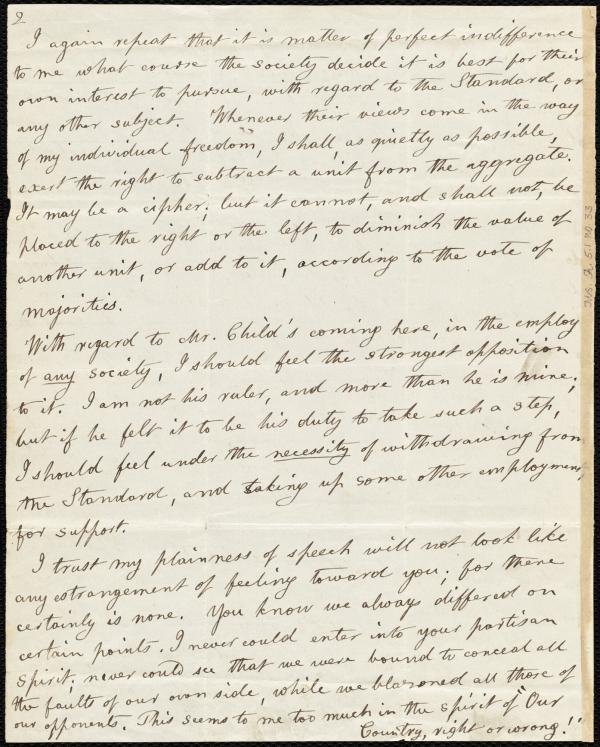 2
I again repeat that it is matter of perfect indifference
to me what course the society decide it is best for their
own interest to pursue, with regard to the Standard, or
any other subject. Whenever their views come in the way
of my individual freedom, I shall, as quietly as possible,
exert the right to subtract a unit from the aggregate.
It may be a cipher; but it cannot, and shall not, be
placed to the right or the left, to diminish the value of
another unit, or add to it, according to the vote of
majorities.
With regard to Mr. Child's coming here, in the employ
of any society, I should feel the strongest opposition
to it. I am not his ruler, and more than he is mine;
but if he felt it to be his duty to take such a step,
I should feel under the necessity of withdrawing from
the Standard, and taking up some other employment,
for support.
I trust my plainness of speech will not look like
any estrangement of feeling toward you; for there
certainly is none. You know we always differed on
certain points. I never could enter into your partisan
spirit; never could see that we were bound to conceal all
the faults of our own side, while we blazoned all those of
our opponents. This seems to me too much in the spirit of "Our
Country, right or wrong!"